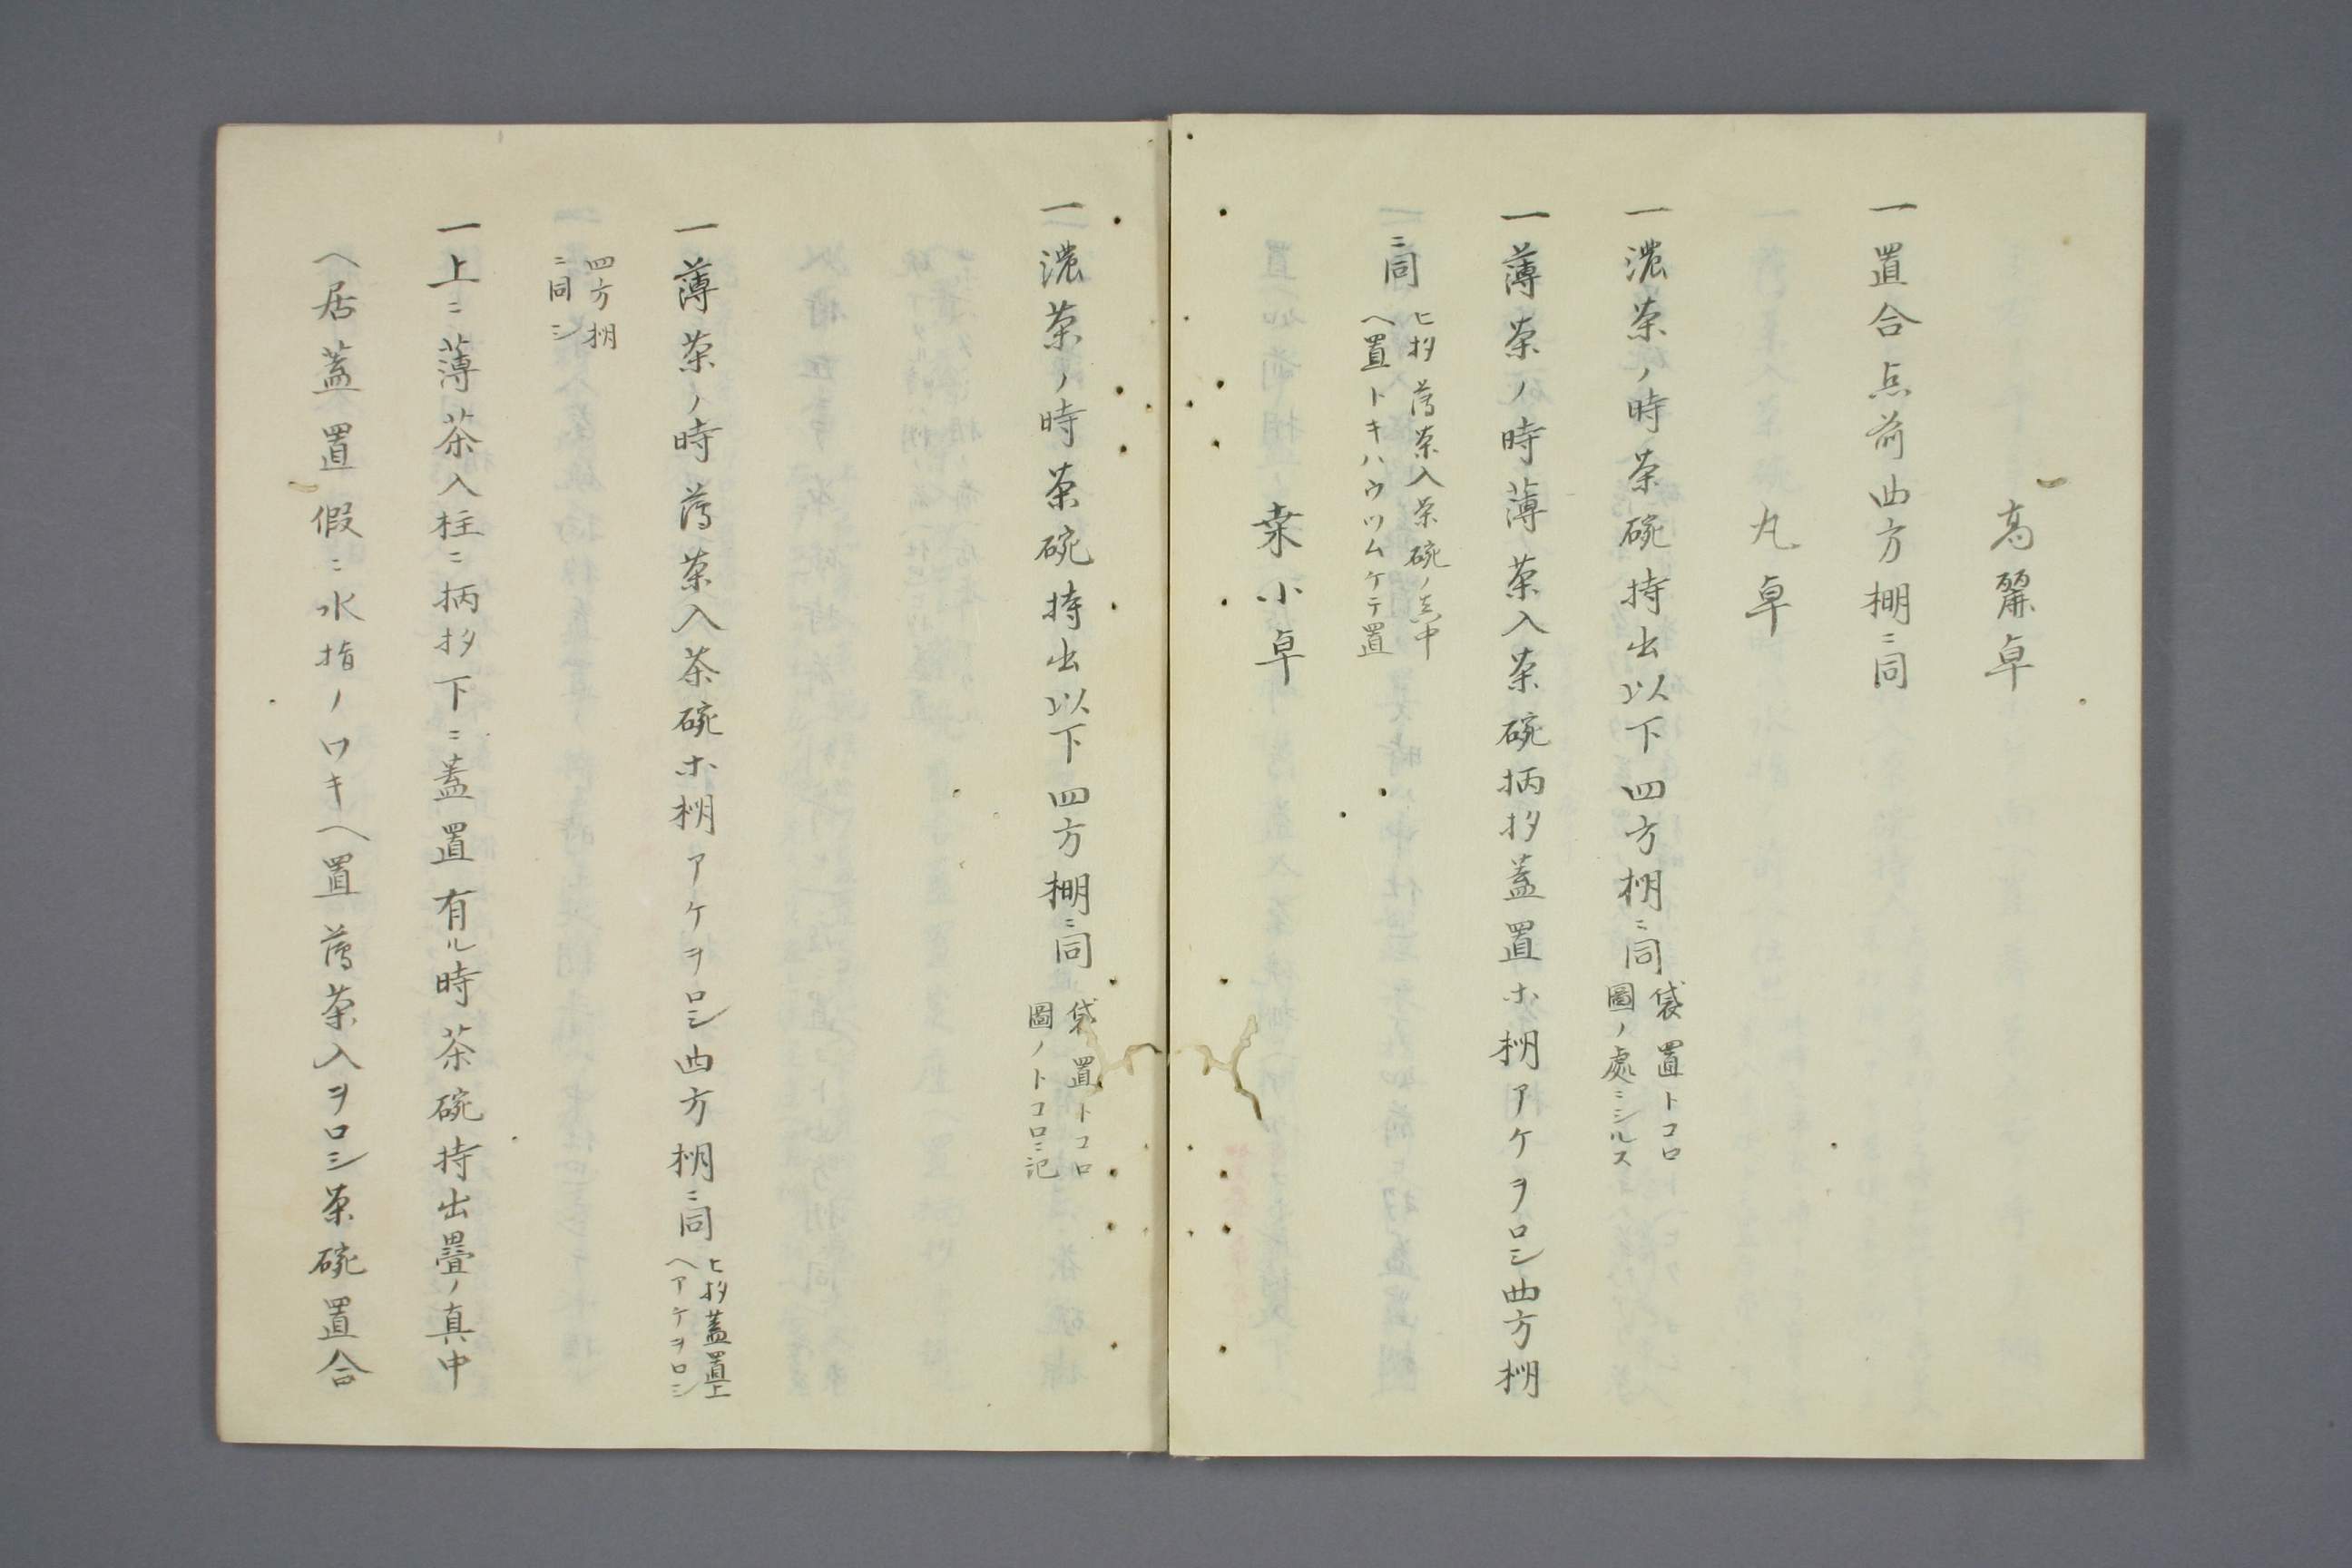 高麗卓
一置合点前四方棚ニ同
丸卓
一濃茶ノ時茶碗持出以下四方棚ニ同
袋置トコロ
圖ノ處ニシルス
一薄茶ノ時薄茶入茶碗柄杓蓋置ホ棚アケヲロシ四方棚
ニ同
ヒ杓薄茶入茶碗ノ真中
ヘ置トキハウツムケテ置
桒小卓
一濃茶ノ時茶碗持出以下四方棚ニ同
袋置トコロ
圖ノトコロニ記
一薄茶ノ時薄茶入茶碗ホ棚アケヲロシ四方棚ニ同
ヒ杓蓋置上
ヘアケヲロシ
四方棚
ニ同シ
一上ニ薄茶入柱ニ柄杓下ニ蓋置有ル時茶碗持出疊ノ真中
ヘ居蓋置假ニ水指ノワキヘ置薄茶入ヲロシ茶碗置合